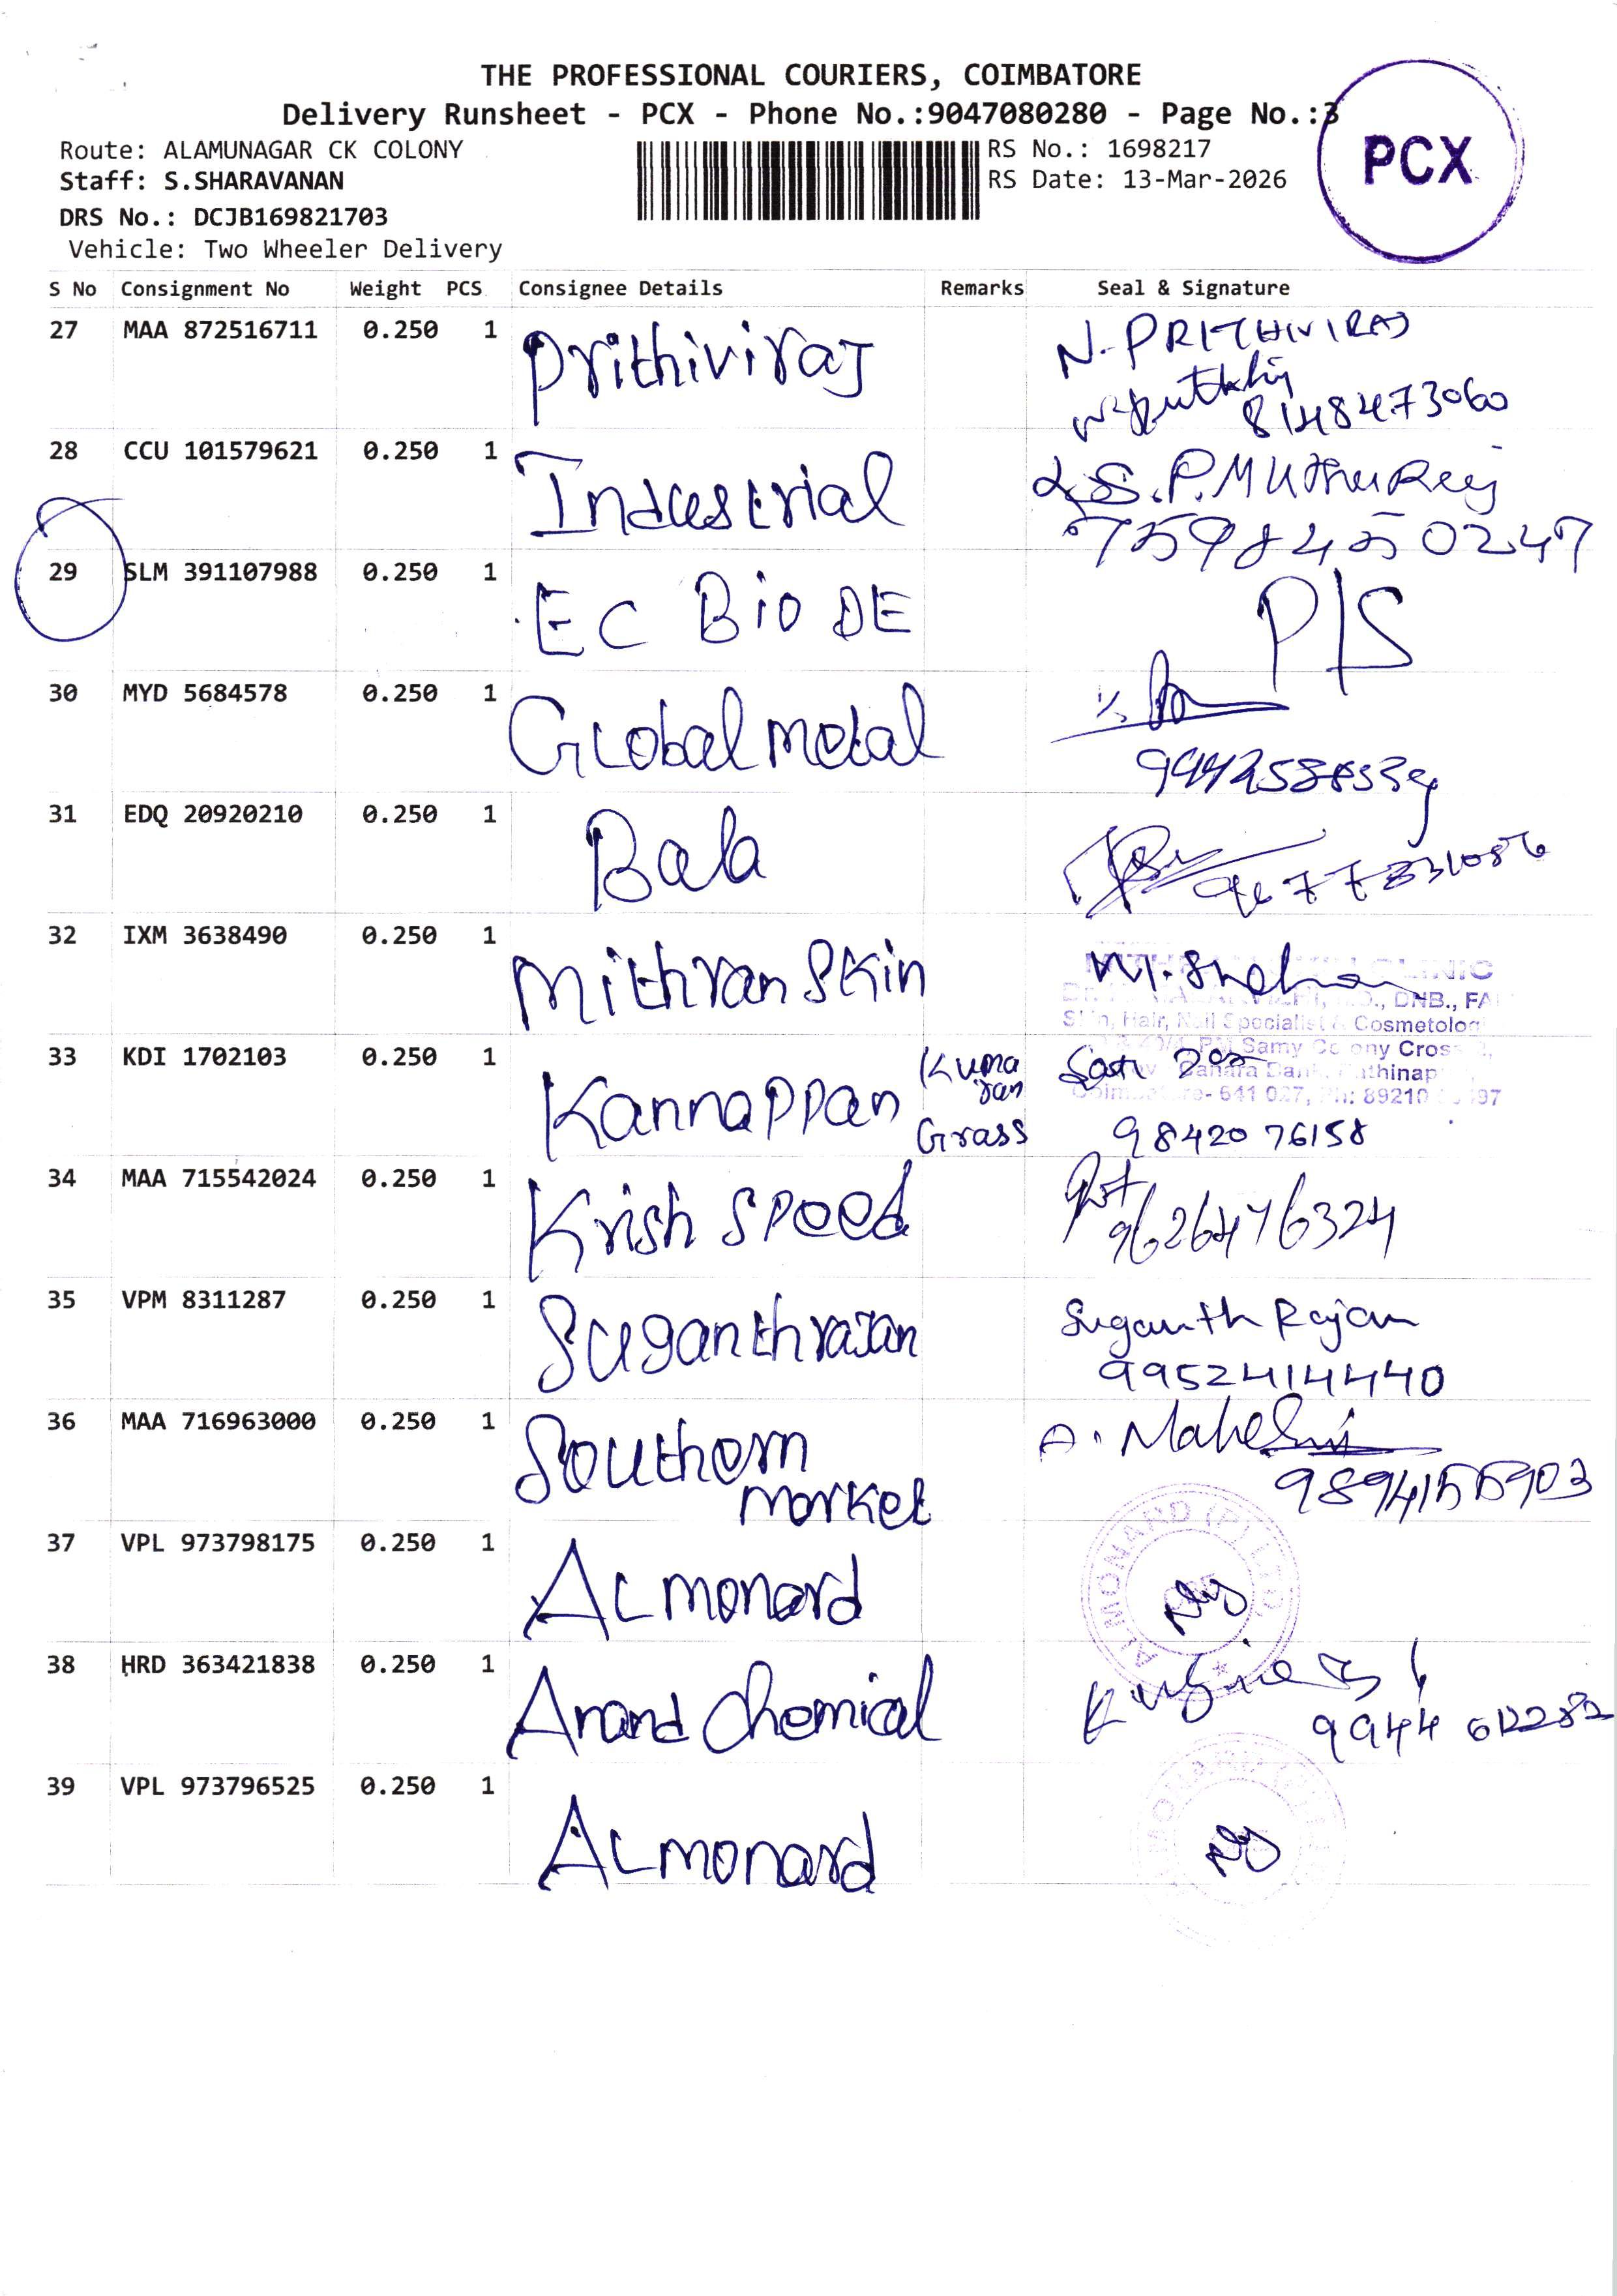 THE PROFESSIONAL COURIERS, COIMBATORE
Delivery Runsheet - PCX - Phone No.:9047080280 - Page No.:3
PCX
Route: ALAMUNAGAR CK COLONY
RS No.: 1698217
Staff: S.SHARAVANAN
RS Date: 13-Mar-2026
DRS No.: DCJB169821703
Vehicle: Two Wheeler Delivery
S No Consignment No Weight PCS Consignee Details Remarks Seal & Signature
27 MAA 872516711 0.250 1 Prithiviraj N. PRITHIVIRAJ
8148473060
28 CCU 101579621 0.250 1 Industrial S.P. Muthu Raj
7598450247
29 SLM 391107988 0.250 1 EC Bio DE P/S
30 MYD 5684578 0.250 1 Global metal
31 EDQ 20920210 0.250 1 Bala
32 IXM 3638490 0.250 1 Mithran Skin
CLINIC
DNB., FA
Skin, Hair, Nail Specialist & Cosmetolog
33 KDI 1702103 0.250 1 Kannappan Kumaran Grass
Samy Colony Cross
641 027, Ph: 89210
98420 76158
34 MAA 715542024 0.250 1 Krish Speed
9626476324
35 VPM 8311287 0.250 1 Suganthrajan Suganth Rajan
9952414440
36 MAA 716963000 0.250 1 Southern market A. Mahe
9894155903
37 VPL 973798175 0.250 1 ALmonard
ALMONARD (P) LTD
38 HRD 363421838 0.250 1 Anand Chemical
9944 612282
39 VPL 973796525 0.250 1 ALmonard